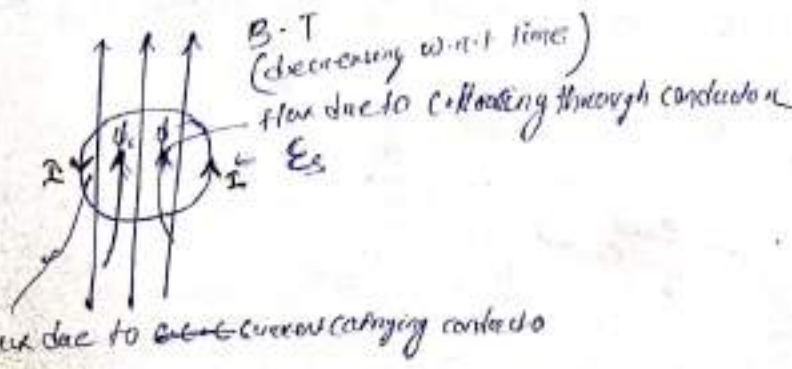 B.T
(decreasing w.r.t time)
flux due to through conductor
φ φ
I I Es
due to current carrying conducto